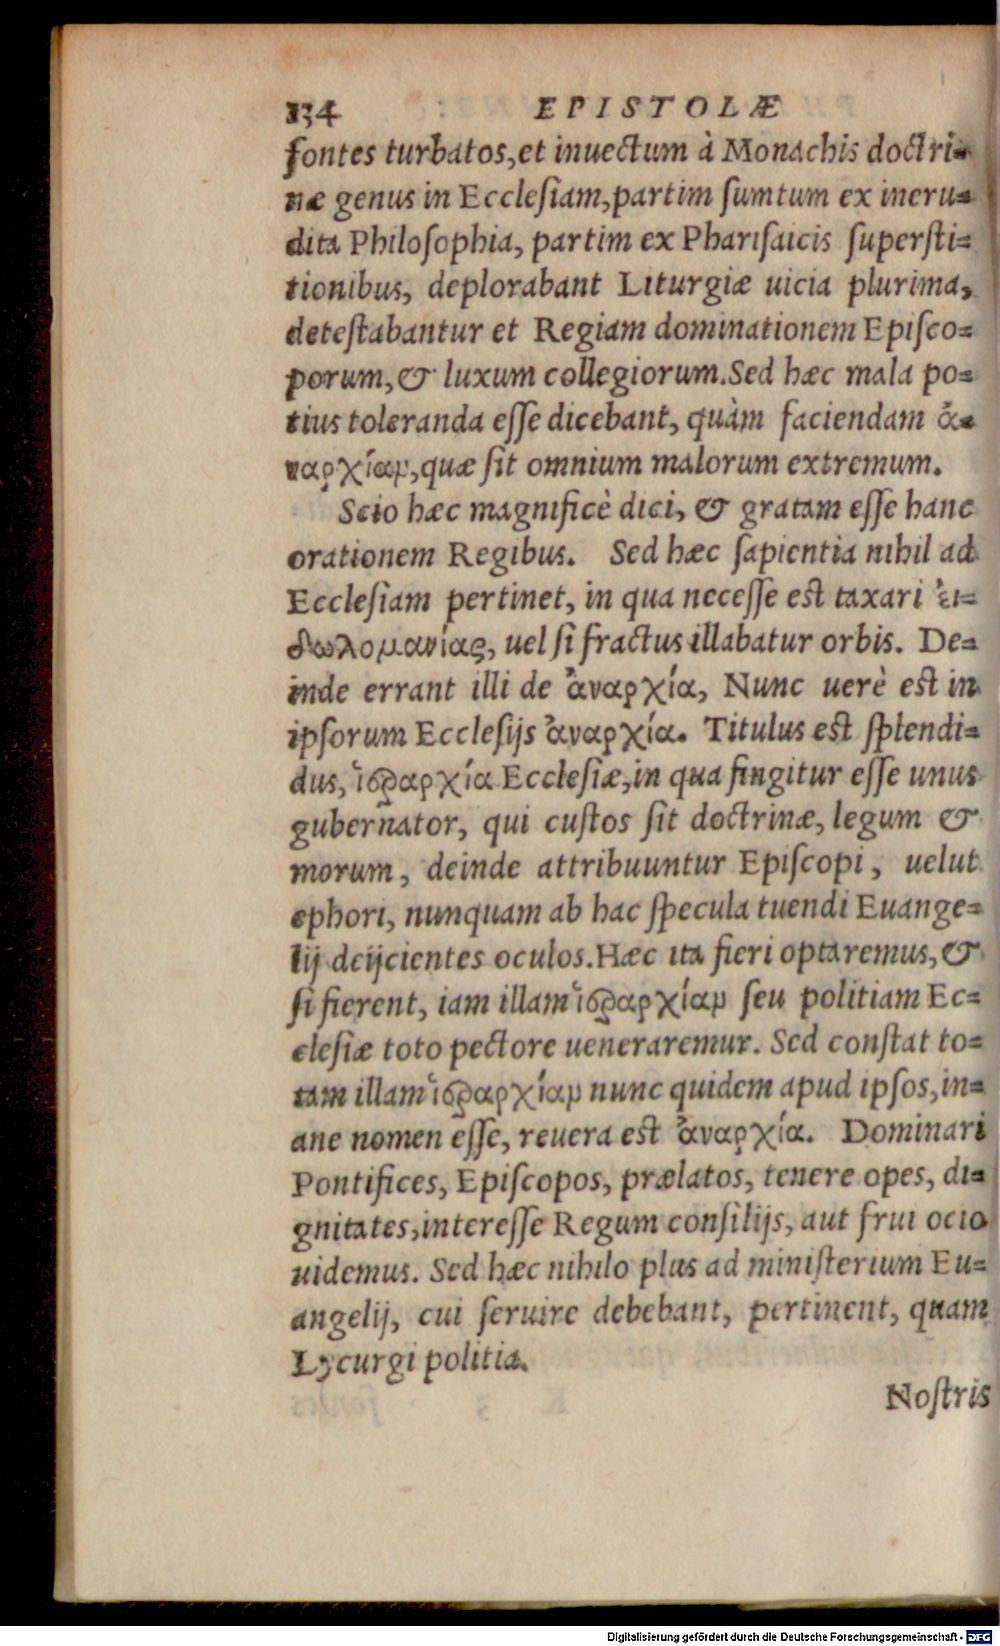 134 EPISTOLÆ
fontes turbatos,et inuectum à Monachis doctri-
næ genus in Ecclesiam,partim sumtum ex ineru-
dita Philosophia, partim ex Pharisaicis supersti-
tionibus, deplorabant Liturgiæ uicia plurima,
detestabantur et Regiam dominationem Episco-
porum,& luxum collegiorum.Sed hæc mala po-
tius toleranda esse dicebant, quàm faciendam ἀ-
ναρχίαν,quæ sit omnium malorum extremum.
Scio hæc magnificè dici, & gratam esse hanc
orationem Regibus. Sed hæc sapientia nihil ad
Ecclesiam pertinet, in qua necesse est taxari ἐι-
δωλομανίας, uel si fractus illabatur orbis. De-
inde errant illi de ἀναρχία, Nunc uerè est in
ipsorum Ecclesijs ἀναρχία. Titulus est splendi-
dus, ἱεραρχία Ecclesiæ,in qua fingitur esse unus
gubernator, qui custos sit doctrinæ, legum &
morum, deinde attribuuntur Episcopi, uelut
ephori, nunquam ab hac specula tuendi Euange-
lij deijcientes oculos.Hæc ita fieri optaremus,&
si fierent, iam illam ἱεραρχίαν seu politiam Ec-
clesiæ toto pectore ueneraremur. Sed constat to-
tam illam ἱεραρχίαν nunc quidem apud ipsos,in-
ane nomen esse, reuera est ἀναρχία. Dominari
Pontifices, Episcopos, prælatos, tenere opes, di-
gnitates,interesse Regum consilijs, aut frui ocio
uidemus. Sed hæc nihilo plus ad ministerium Eu-
angelij, cui seruire debebant, pertinent, quam
Lycurgi politia.
Nostris
Digitalisierung gefördert durch die Deutsche Forschungsgemeinschaft - DFG